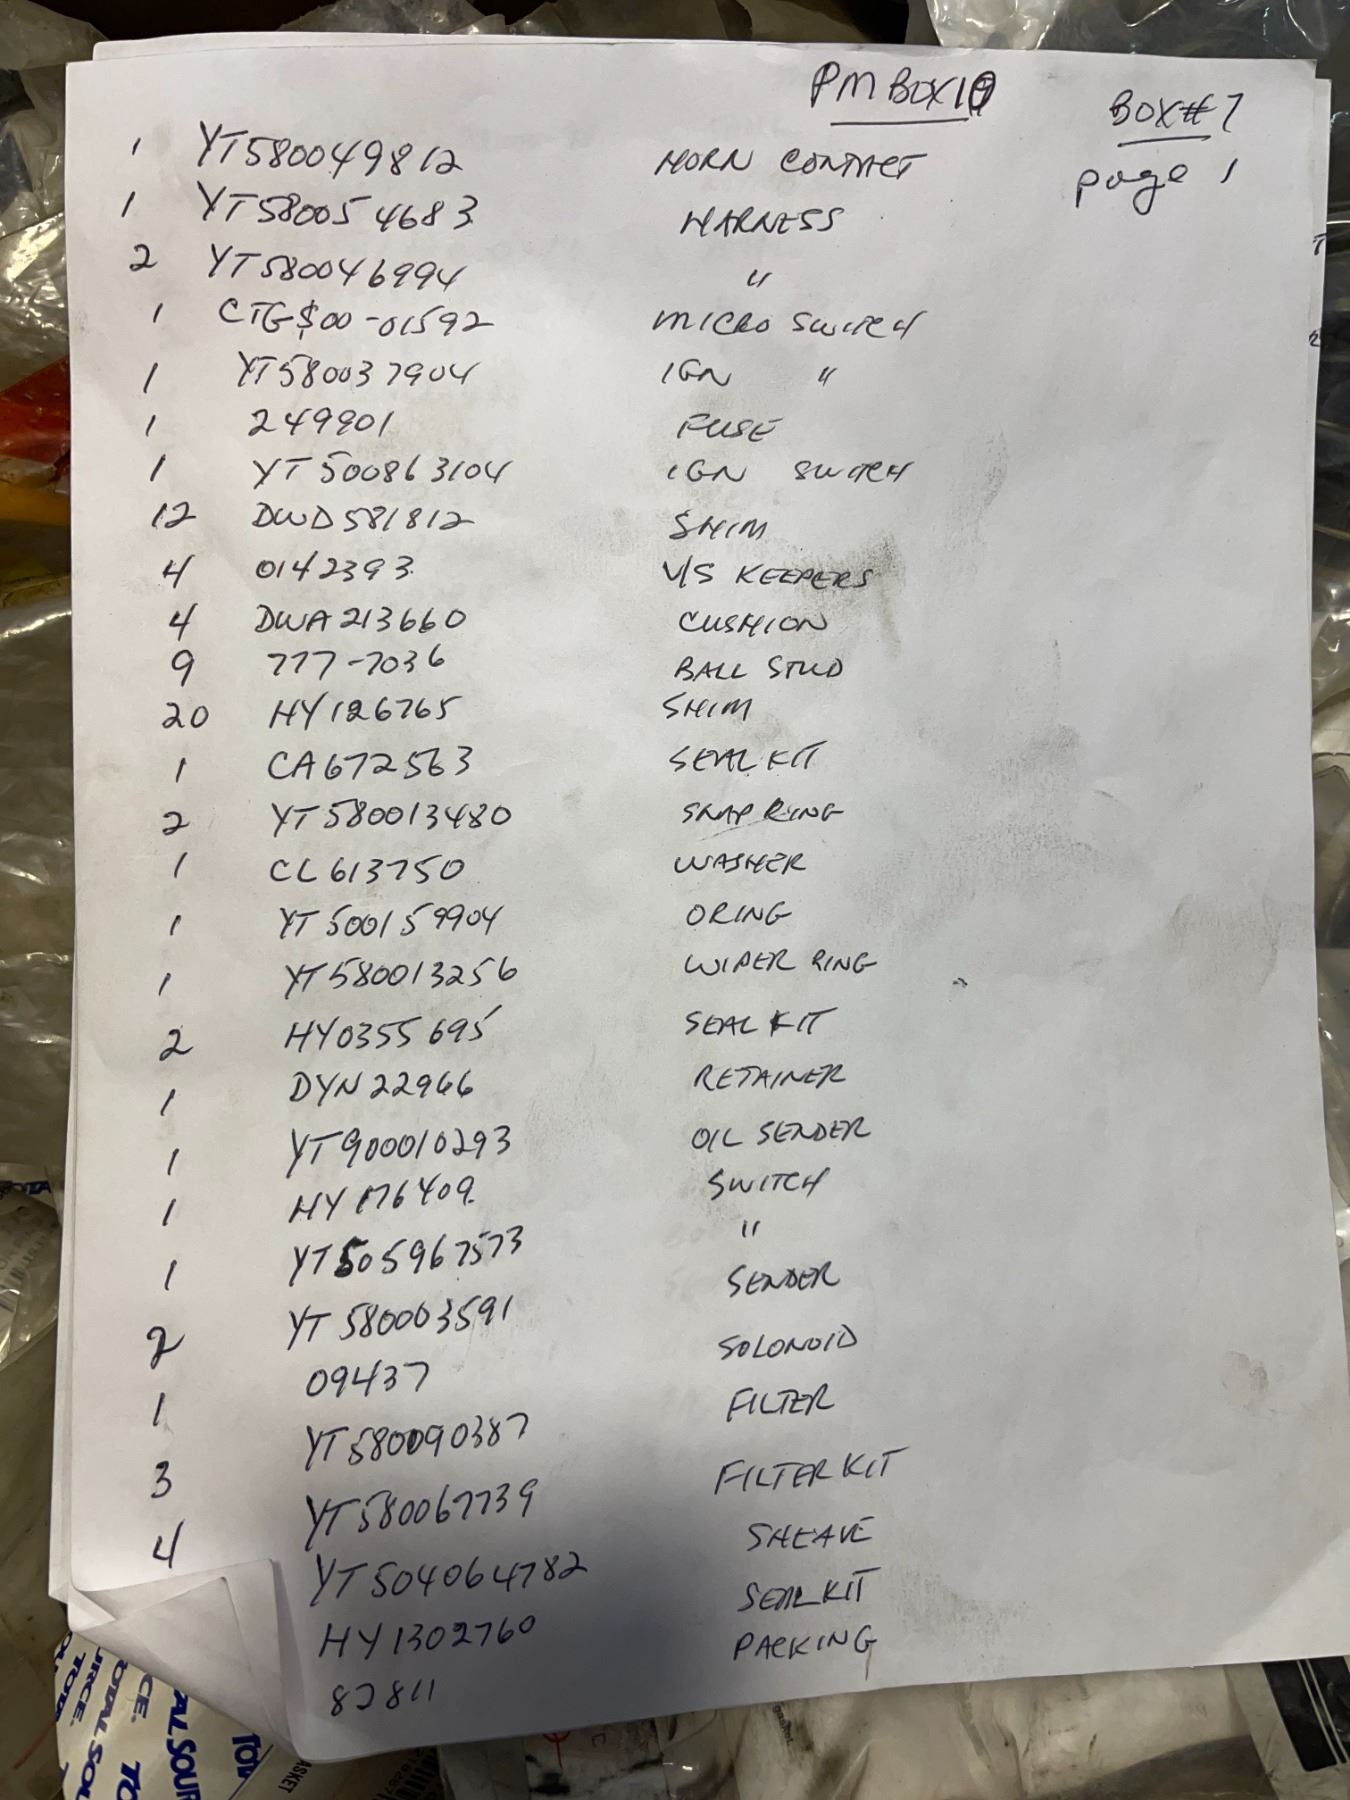 PM BOX 10 BOX# 7
page 1
1 YT580049812 HORN CONTACT
1 YT580054683 HARNESS
2 YT580046994 "
1 CTG$00-01592 MICRO SWITCH
1 YT580037904 IGN "
1 249901 FUSE
1 YT500863104 IGN SWITCH
12 DWD581812 SHIM
4 0142393 V/S KEEPERS
4 DWA213660 CUSHION
9 777-7036 BALL STUD
20 HY126765 SHIM
1 CA672563 SEAL KIT
2 YT580013480 SNAP RING
1 CL613750 WASHER
1 YT500159904 ORING
1 YT580013256 WIPER RING
2 HY0355695 SEAL KIT
1 DYN22966 RETAINER
1 YT900010293 OIL SENDER
1 HY176409 SWITCH
1 YT505967573 "
2 YT580003591 SENDER
1 09437 SOLONOID
3 YT580090387 FILTER
4 YT580067739 FILTER KIT
YT504064782 SHEAVE
HY1302760 SEAL KIT
82811 PACKING